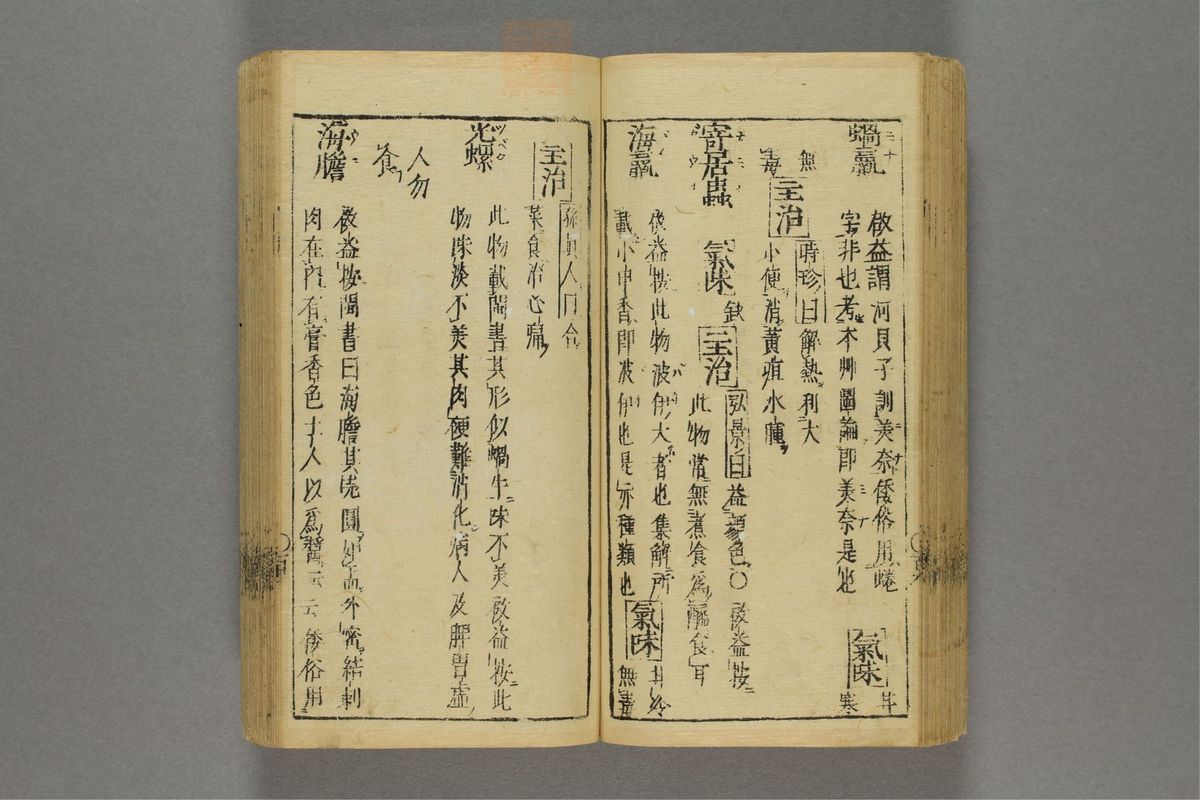 蝸蠃 啟益謂河貝子訓美奈倭俗用蜷
字非也考本艸圖論即美奈是也
氣味 甘寒
無毒
主治 時珍曰解熱利大
小便消黃疸水腫
寄居蟲 氣味 缺 主治 弘景曰益顏色○啟益按
此物常無煮食為醢食耳
海蠃 啟益按此物波伊大者也集解所
載小甲香即波伊也是亦種類也
氣味 甘冷
無毒
主治 孫眞人曰合
菜食治心痛
光螺 此物載閩書其形似蝸牛味不美啟益按此
物味淡不美其肉硬難消化病人及脾胃虛
人勿
食
海膽 啟益按閩書曰海膽其殼圓如盂外密結刺
肉在內有膏香色土人以為醬云云倭俗用